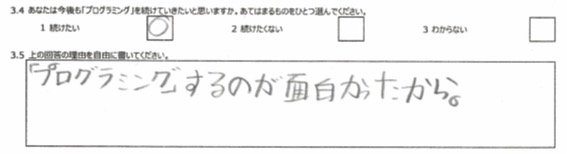 3.4 あなたは今後も「プログラミング」を続けていきたいと思いますか。あてはまるものをひとつ選んでください。
1 続けたい ○ 2 続けたくない 3 わからない
3.5 上の回答の理由を自由に書いてください。
「プログラミング」するのが面白かったから。